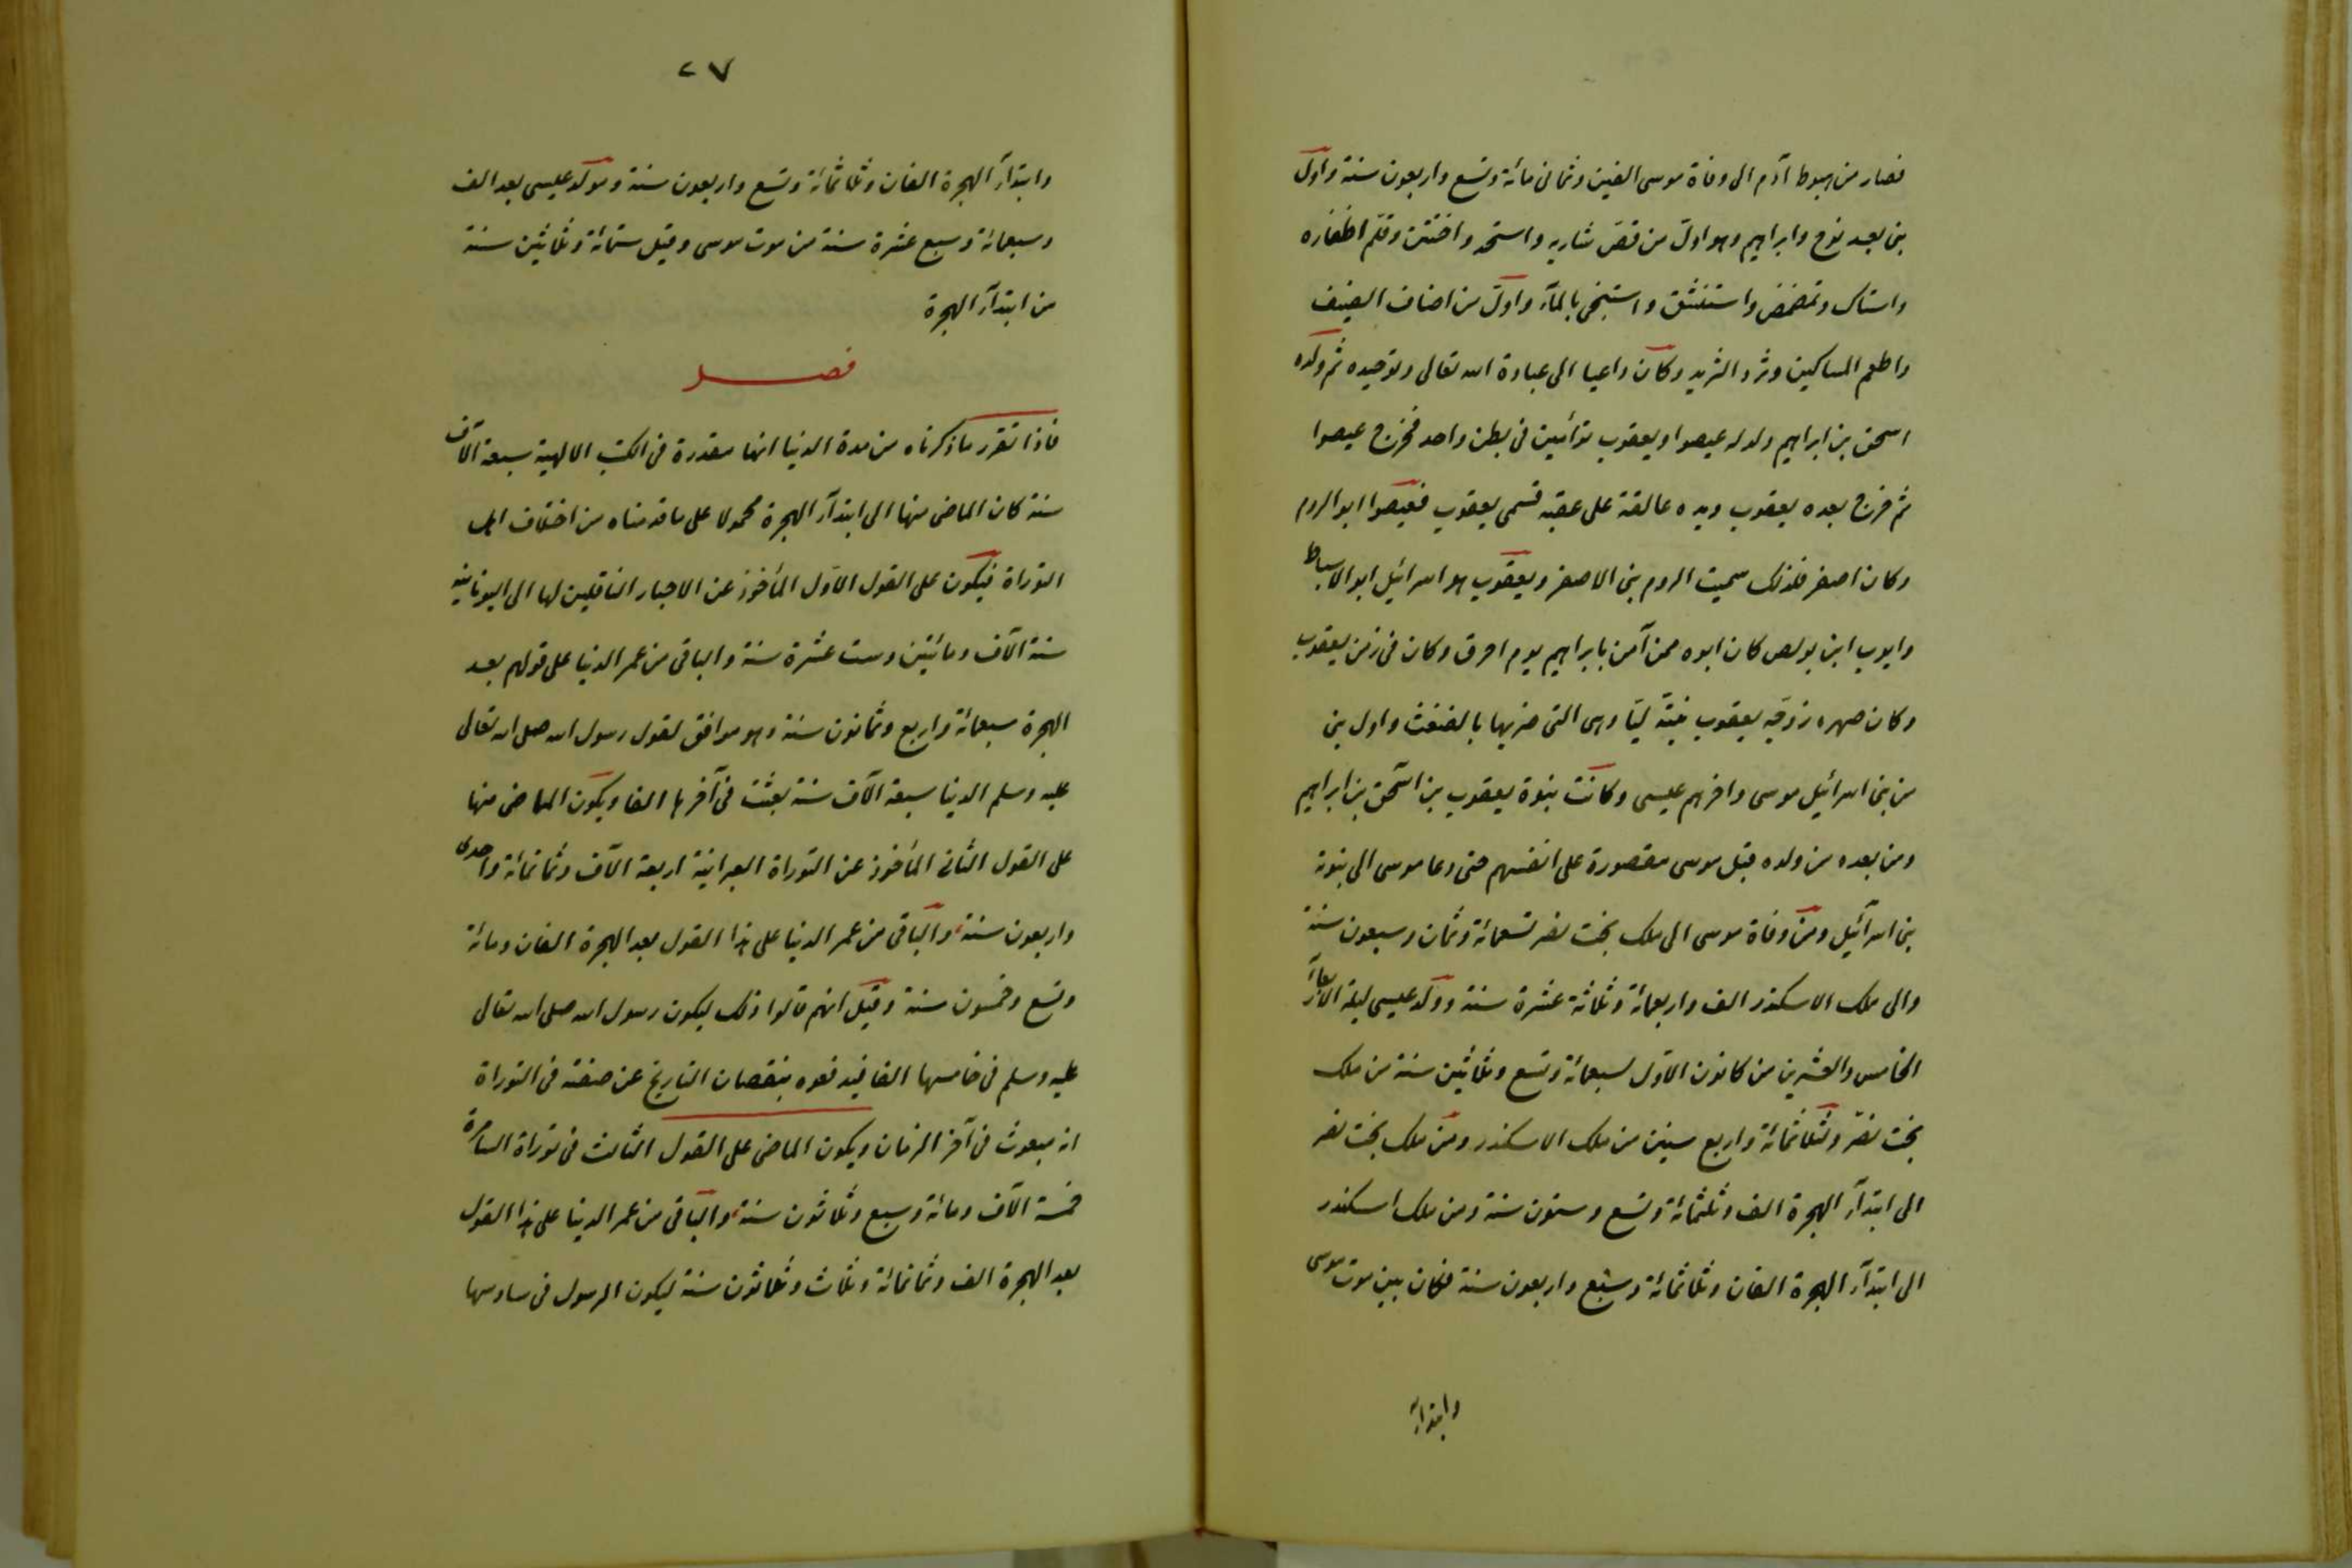 فصار من هبوط آدم الى وفاة موسى الفين وثمانى مائة وتسع واربعون سنة واول
بنى بعد نوح وابراهيم وهو اول من قص شاربه واستحد واختتن وقلم اظفاره
واستاك وتمضمض واستنشق واستنجى بالماء واول من اضاف الضيف
واطعم المساكين وثرد الثريد وكان داعيا الى عبادة الله تعالى وتوحيده ثم ولده
اسحق بن ابراهيم ولد له عيصوا ويعقوب توأمين فى بطن واحد فخرج عيصوا
ثم خرج بعده يعقوب ويده عالقة على عقبه فسمى يعقوب فعيصوا ابو الروم
وكان اصفر فلذلك سميت الروم بنى الاصفر ويعقوب هو اسرائيل ابو الاسباط
وايوب ابن بولص كان ابوه ممن آمن بابراهيم يوم احرق وكان فى زمن يعقوب
وكان صهره زوجه يعقوب بنته ليا وهى التى ضربها بالضغث واول بنى
من بنى اسرائيل موسى واخرهم عيسى وكانت نبوة يعقوب بن اسحق بن ابراهيم
ومن بعده من ولده قبل موسى مقصورة على انفسهم حتى دعا موسى الى نبوة
بنى اسرآئيل ومن وفاة موسى الى ملك بخت نصر تسعمائة وثمان وسبعون سنة
والى ملك الاسكندر الف واربعمائة وثلاثة عشرة سنة وولد عيسى ليلة الاربعاء
الخامس والعشرين من كانون الاول لسبعمائة وتسع وثلاثين سنة من ملك
بخت نصر ولثلاثمائة واربع سنين من ملك الاسكندر ومن ملك بخت نصر
الى ابتدآء الهجرة الف وثلثمائة وتسع وستون سنة ومن ملك اسكندر
الى ابتدآء الهجرة الفان وثلاثمائة وسبع واربعون سنة فكان بين موت موسى
وابتدآء
٢٧
وابتدآء الهجرة الفان وثلاثمائة وتسع واربعون سنة ومولد عيسى بعد الف
وسبعمائة وسبع عشرة سنة من موت موسى وقبل ستمائة وثلاثين سنة
من ابتدآء الهجرة
فصل
فاذا تقرر ما ذكرناه من مدة الدنيا انها مقدرة فى الكتب الالهية سبعة آلاف
سنة كان الماضى منها الى ابتدآء الهجرة محمولا على ما قدمناه من اختلاف اهل
التوراة فيكون على القول الاول المأخوذ عن الاحبار الناقلين لها الى اليونانية
ستة آلاف ومائتين وست عشرة سنة والباقى من عمر الدنيا على قولهم بعد
الهجرة سبعمائة واربع وثمانون سنة وهو موافق لقول رسول الله صلى الله تعالى
عليه وسلم الدنيا سبعة آلاف سنة بعثت فى آخرها الفا ويكون الماضى منها
على القول الثانى المأخوذ عن التوراة العبرانية اربعة آلاف وثمانمائة واحدى
واربعون سنة والباقى من عمر الدنيا على هذا القول بعد الهجرة الفان ومائة
وتسع وخمسون سنة وقيل انهم قالوا ذلك ليكون رسول الله صلى الله تعالى
عليه وسلم فى خامسها الفا فيدفعوه بنقصان التاريخ عن صفته فى التوراة
انه مبعوث فى آخر الزمان ويكون الماضى على القول الثالث فى توراة السامرة
خمسة آلاف ومائة وسبع وثلاثون سنة والباقى من عمر الدنيا على هذا القول
بعد الهجرة الف وثمانمائة وثلاث وثلاثون سنة ليكون الرسول فى سادسها